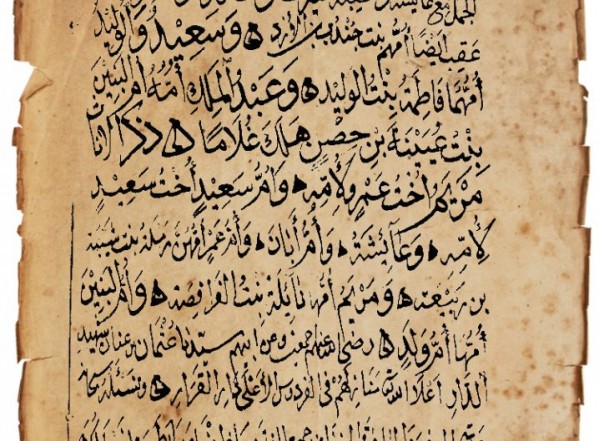 الجمل مع عائشة
عقب ايضا امهم بنت جندب بن الازد ه وسعيد والوليد
أمهما فاطمة بنت الوليد ه وعبد الملك أمه أم البنين
بنت عيينة بن حصن هلك غلاما ه ذكر اناث
مريم أخت عمرو لأمه ه وأم سعيد أخت سعيد
لأمه ه وعائشة ه وأم أبان ه وأم عمرو أمهن رملة بنت شيبة
بن ربيعه ه ومريم أمها نايلة بنت الفرافصه ه وأم البنين
أمها أم ولد ه رضي الله عنهم جميعا وعن ابيهم سيدنا عثمان بن عفان شهيد
الدار اعلا الله منازلهم في الفردوس الأعلى في دار القرار ه ونسئله سبحانه